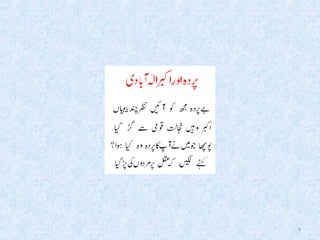 پردہ اور اکبر الٰہ آبادی
بے پردہ مجھ کو آئیں نظر چند بیبیاں
اکبر وہیں خجالت قومی سے گڑ گیا
پوچھا جو میں نے آپ کا پردہ وہ کیا ہوا؟
کہنے لگیں کہ عقل پر مردوں کی پڑ گیا